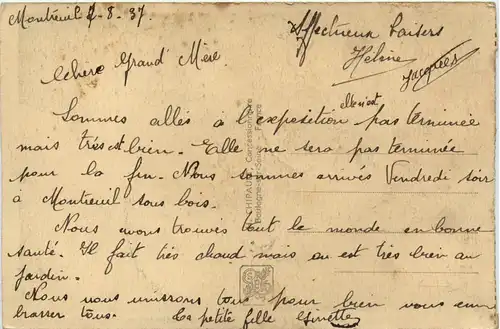 Montreuil 2-8-37.
Affectueux baisers
Hélène
Jacques
Chere Grand' Mère.
elle n'est
Sommes allés à l'exposition pas terminée
mais très est bien. Elle ne sera pas terminée
pour la fin. Nous sommes arrivés Vendredi soir
à Montreuil sous bois.
Nous avons trouvés tout le monde en bonne
santé. Il fait très chaud mais on est très bien au
jardin.
Nous nous unissons tous pour bien vous em
brasser tous. Ta petite fille Ginette
CHIPAULT, Concessionnaire
Boulogne-sur-Seine France